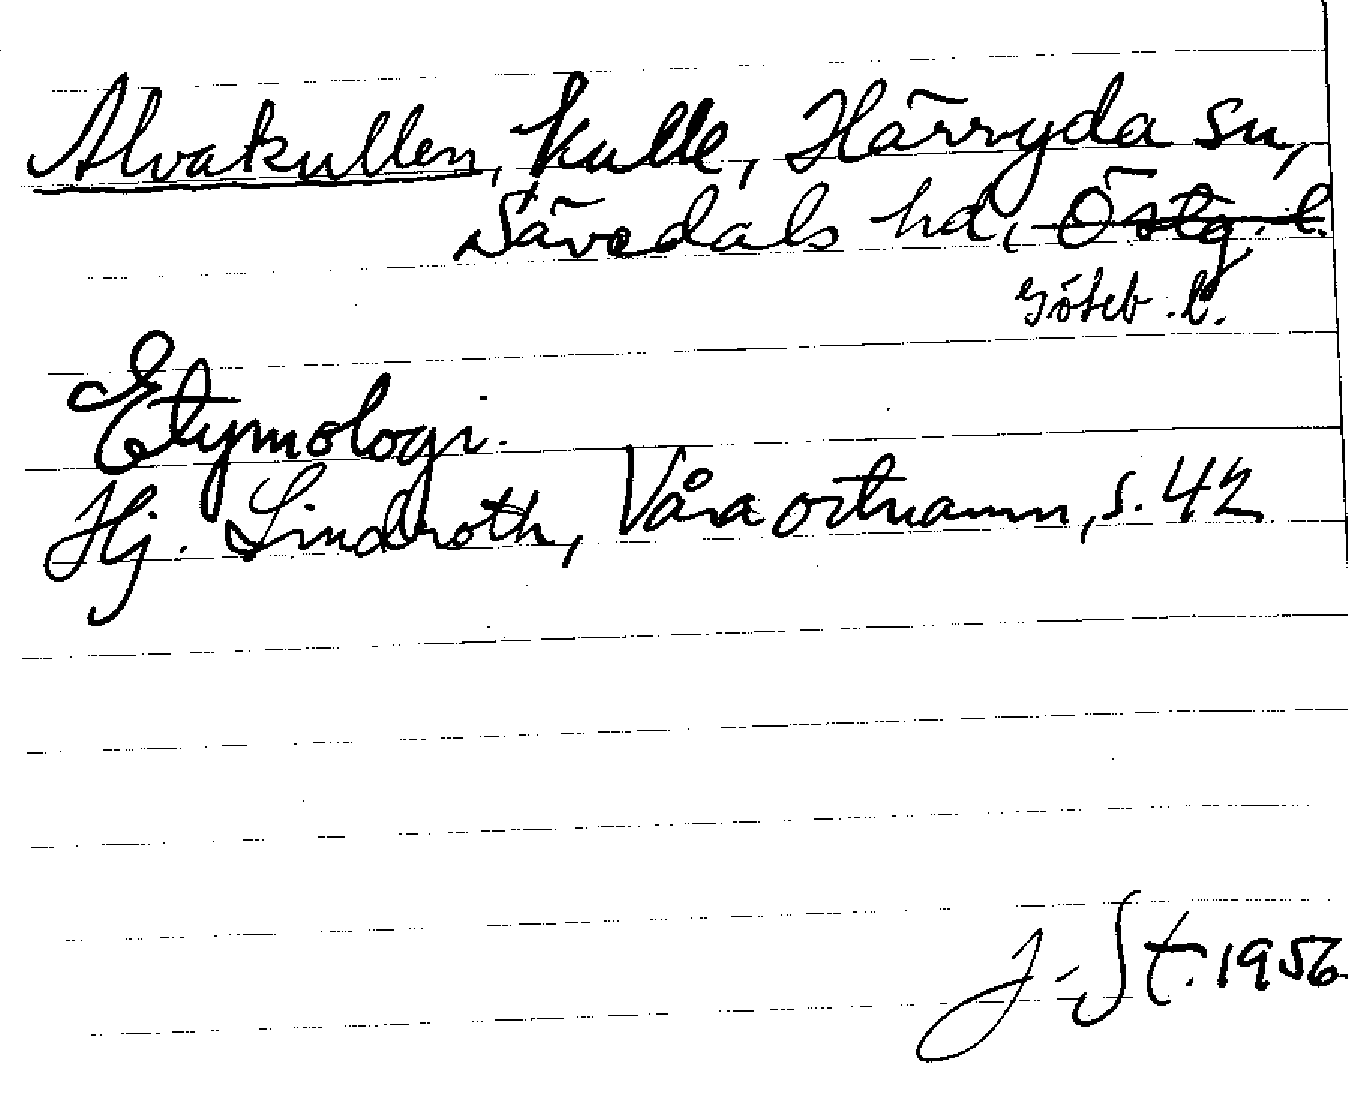 Alvakullen, kulle, Härryda sn,
Sävedals hd, Östg. l.
Göteb. l.
Etymologi.
Hj. Lindroth, Våra ortnamn, s. 42
J-St. 1956